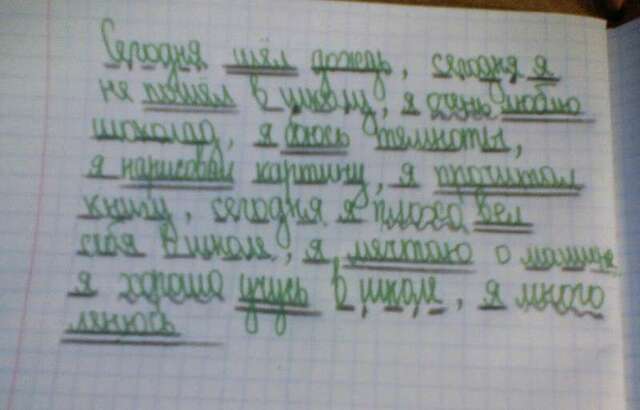 Сегодня шёл дождь, сегодня я
не пошёл в школу, я очень люблю
шоколад, я боюсь темноты,
я нарисовал картину, я прочитал
книгу, сегодня я плоха вел
себя в школе, я мечтаю о машине
я хораша учусь в школе, я много
ленюсь